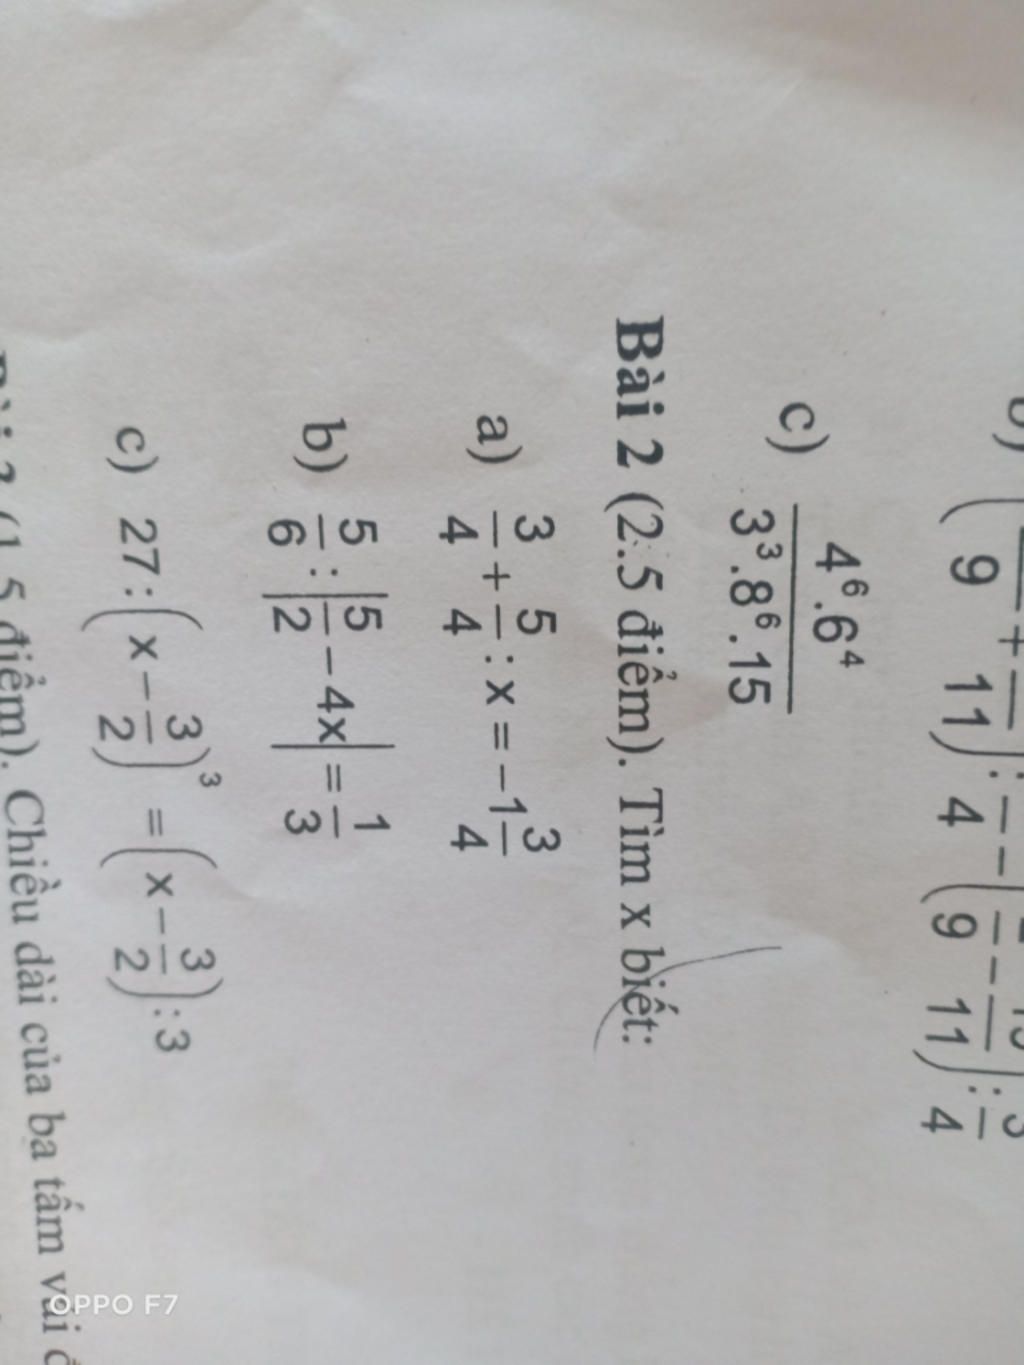 ( /9 + /11) : /4 - ( /9 - /11) : 3/4
c) 4⁶.6⁴/3³.8⁶.15
Bài 2 (2.5 điểm). Tìm x biết:
a) 3/4 + 5/4 : x = -1 3/4
b) 5/6 : |5/2 - 4x| = 1/3
c) 27 : (x - 3/2)³ = (x - 3/2) : 3
(1.5 điểm). Chiều dài của ba tấm vải
OPPO F7